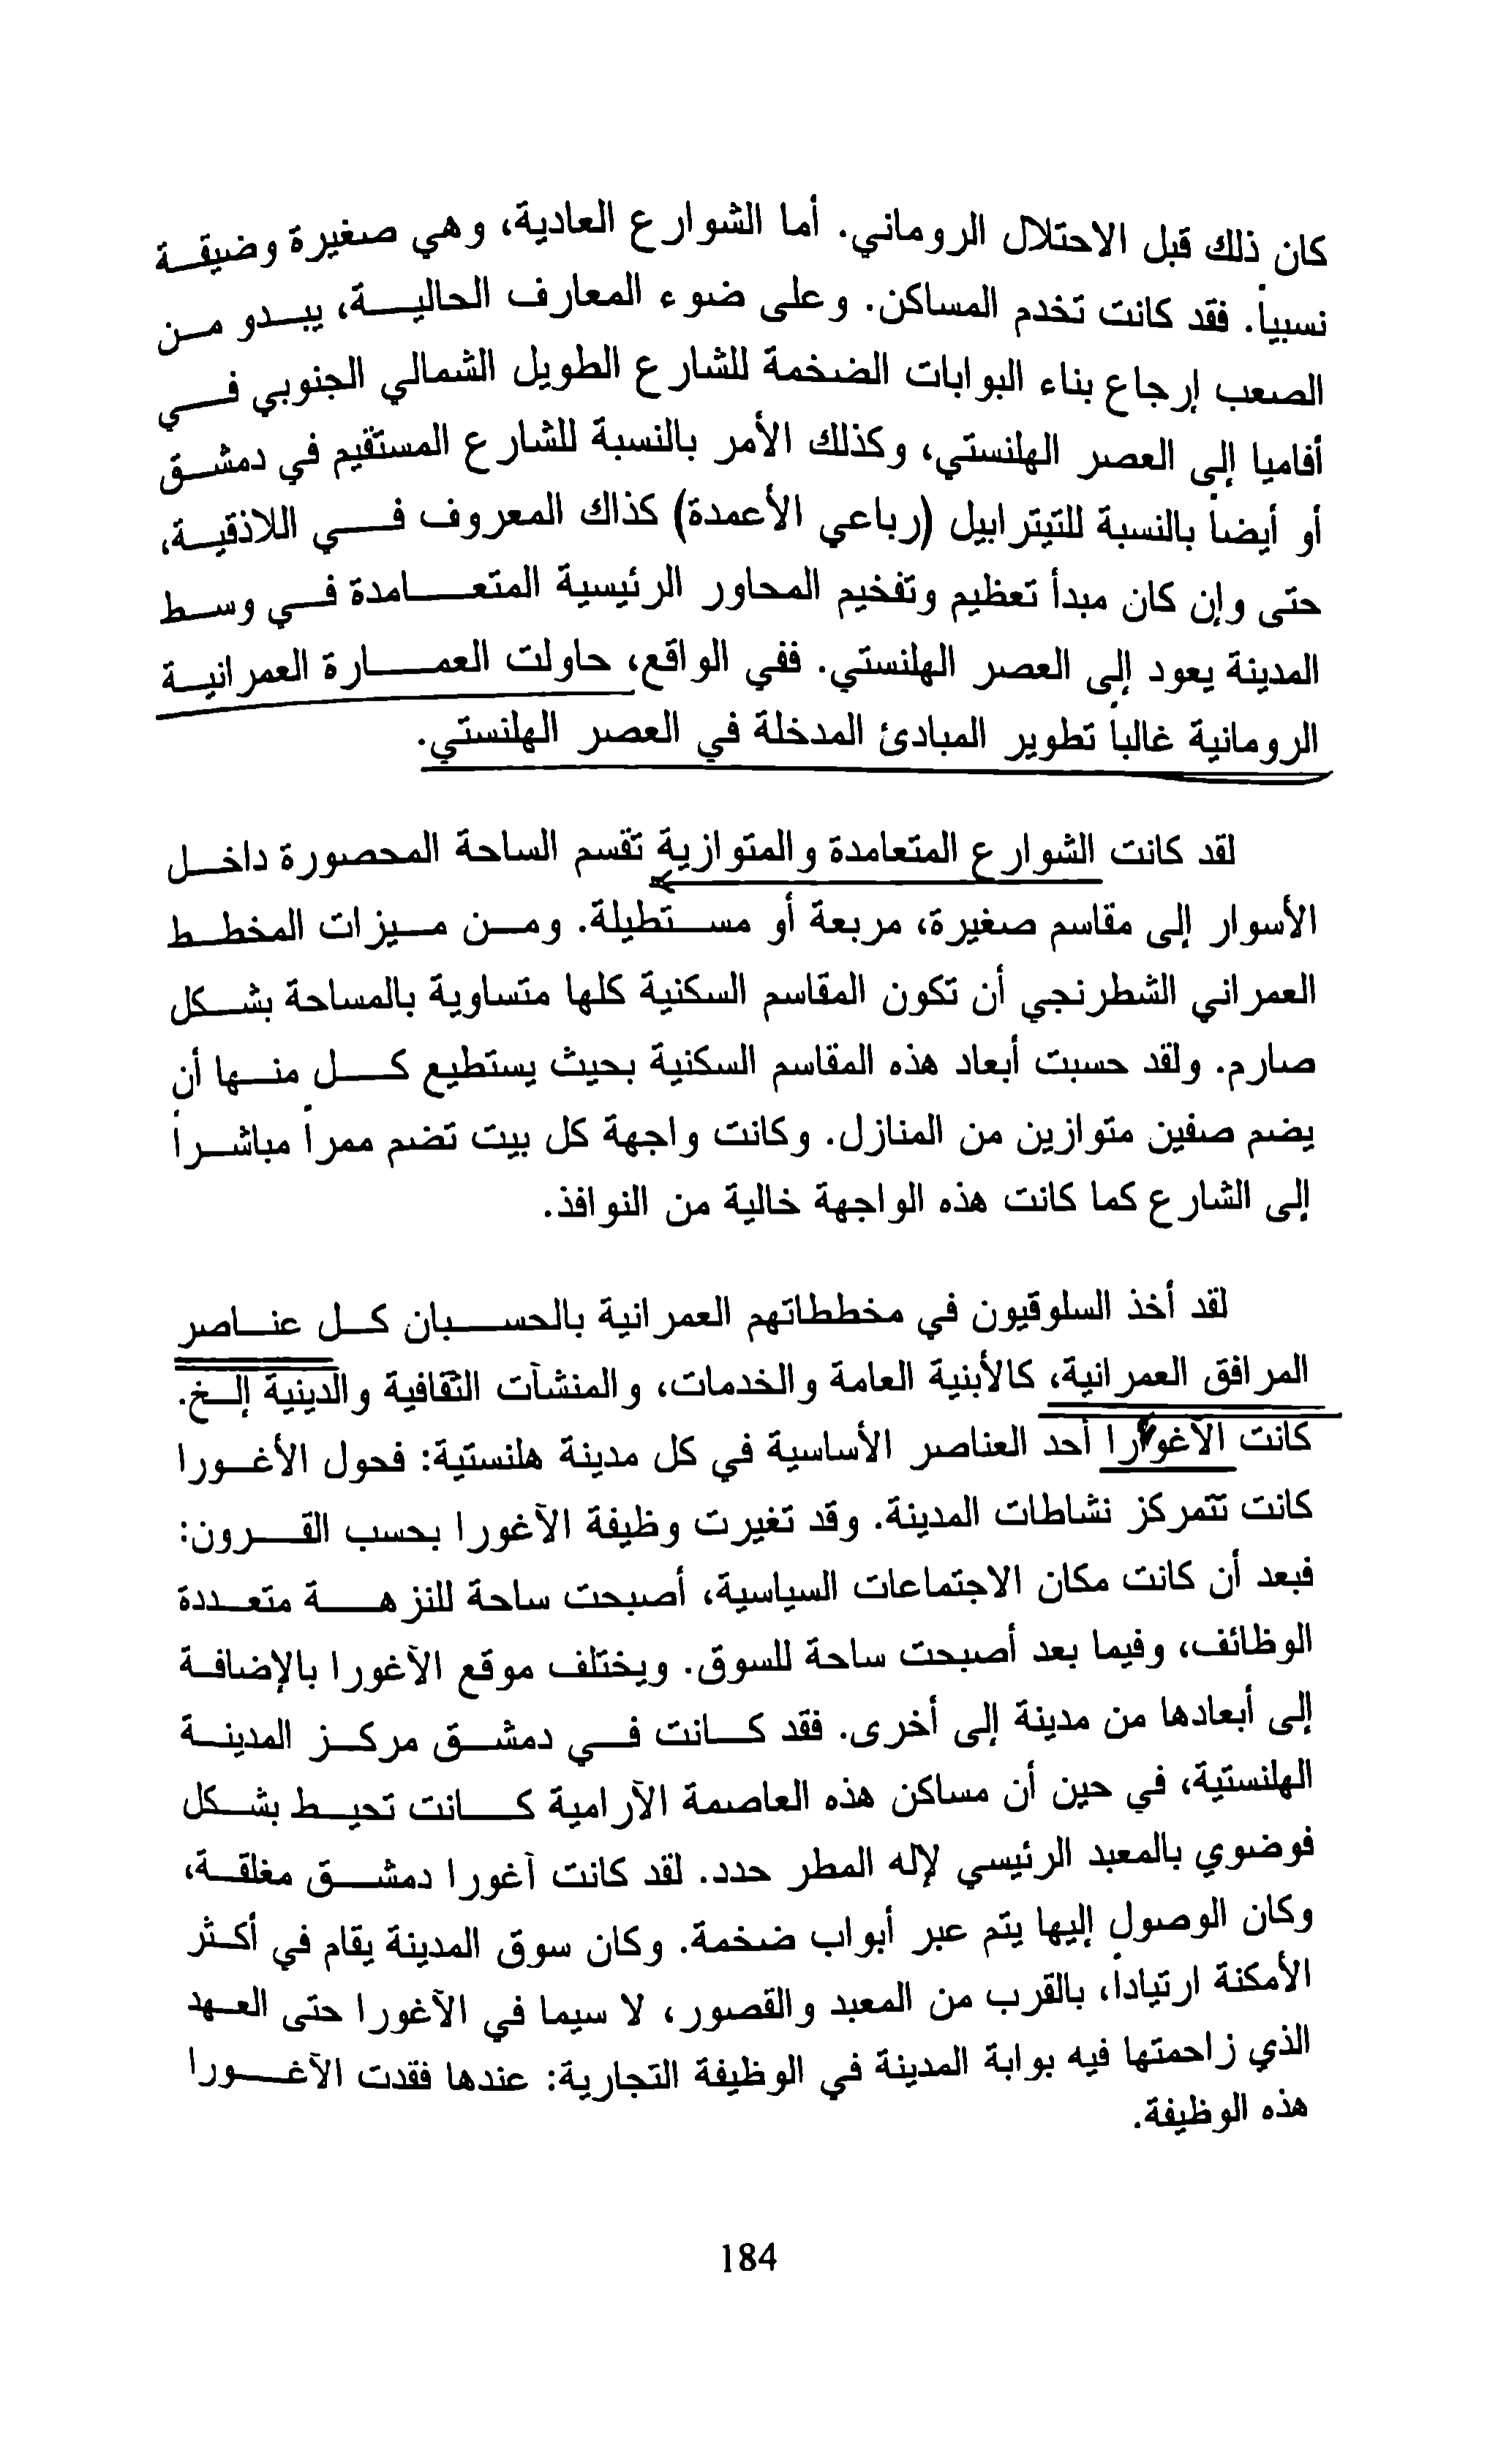 كان ذلك قبل الاحتلال الروماني. أما الشوارع العادية، وهي صغيرة وضيقة
نسبياً. فقد كانت تخدم المساكن. وعلى ضوء المعارف الحالية، يبدو من
الصعب إرجاع بناء البوابات الضخمة للشارع الطويل الشمالي الجنوبي في
أفاميا إلى العصر الهلنستي، وكذلك الأمر بالنسبة للشارع المستقيم في دمشق
أو أيضاً بالنسبة للتيترابيل (رباعي الأعمدة) كذاك المعروف في اللاذقية،
حتى وإن كان مبدأ تعظيم وتفخيم المحاور الرئيسية المتعامدة في وسط
المدينة يعود إلى العصر الهلنستي. ففي الواقع، حاولت العمارة العمرانية
الرومانية غالباً تطوير المبادئ المدخلة في العصر الهلنستي.
لقد كانت الشوارع المتعامدة والمتوازية تقسم الساحة المحصورة داخل
الأسوار إلى مقاسم صغيرة، مربعة أو مستطيلة. ومن ميزات المخطط
العمراني الشطرنجي أن تكون المقاسم السكنية كلها متساوية بالمساحة بشكل
صارم. ولقد حسبت أبعاد هذه المقاسم السكنية بحيث يستطيع كل منها أن
يضم صفين متوازين من المنازل. وكانت واجهة كل بيت تضم ممراً مباشراً
إلى الشارع كما كانت هذه الواجهة خالية من النوافذ.
لقد أخذ السلوقيون في مخططاتهم العمرانية بالحسبان كل عناصر
المرافق العمرانية، كالأبنية العامة والخدمات، والمنشآت الثقافية والدينية إلخ.
كانت الآغورا أحد العناصر الأساسية في كل مدينة هلنستية: فحول الأغورا
كانت تتمركز نشاطات المدينة. وقد تغيرت وظيفة الآغورا بحسب القرون:
فبعد أن كانت مكان الاجتماعات السياسية، أصبحت ساحة للنزهة متعددة
الوظائف، وفيما بعد أصبحت ساحة للسوق. ويختلف موقع الآغورا بالإضافة
إلى أبعادها من مدينة إلى أخرى. فقد كانت في دمشق مركز المدينة
الهلنستية، في حين أن مساكن هذه العاصمة الآرامية كانت تحيط بشكل
فوضوي بالمعبد الرئيسي لإله المطر حدد. لقد كانت آغورا دمشق مغلقة،
وكان الوصول إليها يتم عبر أبواب ضخمة. وكان سوق المدينة يقام في أكثر
الأمكنة ارتياداً، بالقرب من المعبد والقصور، لا سيما في الآغورا حتى العهد
الذي زاحمتها فيه بوابة المدينة في الوظيفة التجارية: عندها فقدت الآغورا
هذه الوظيفة.
184